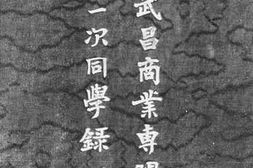 武昌商業專
一次同學錄